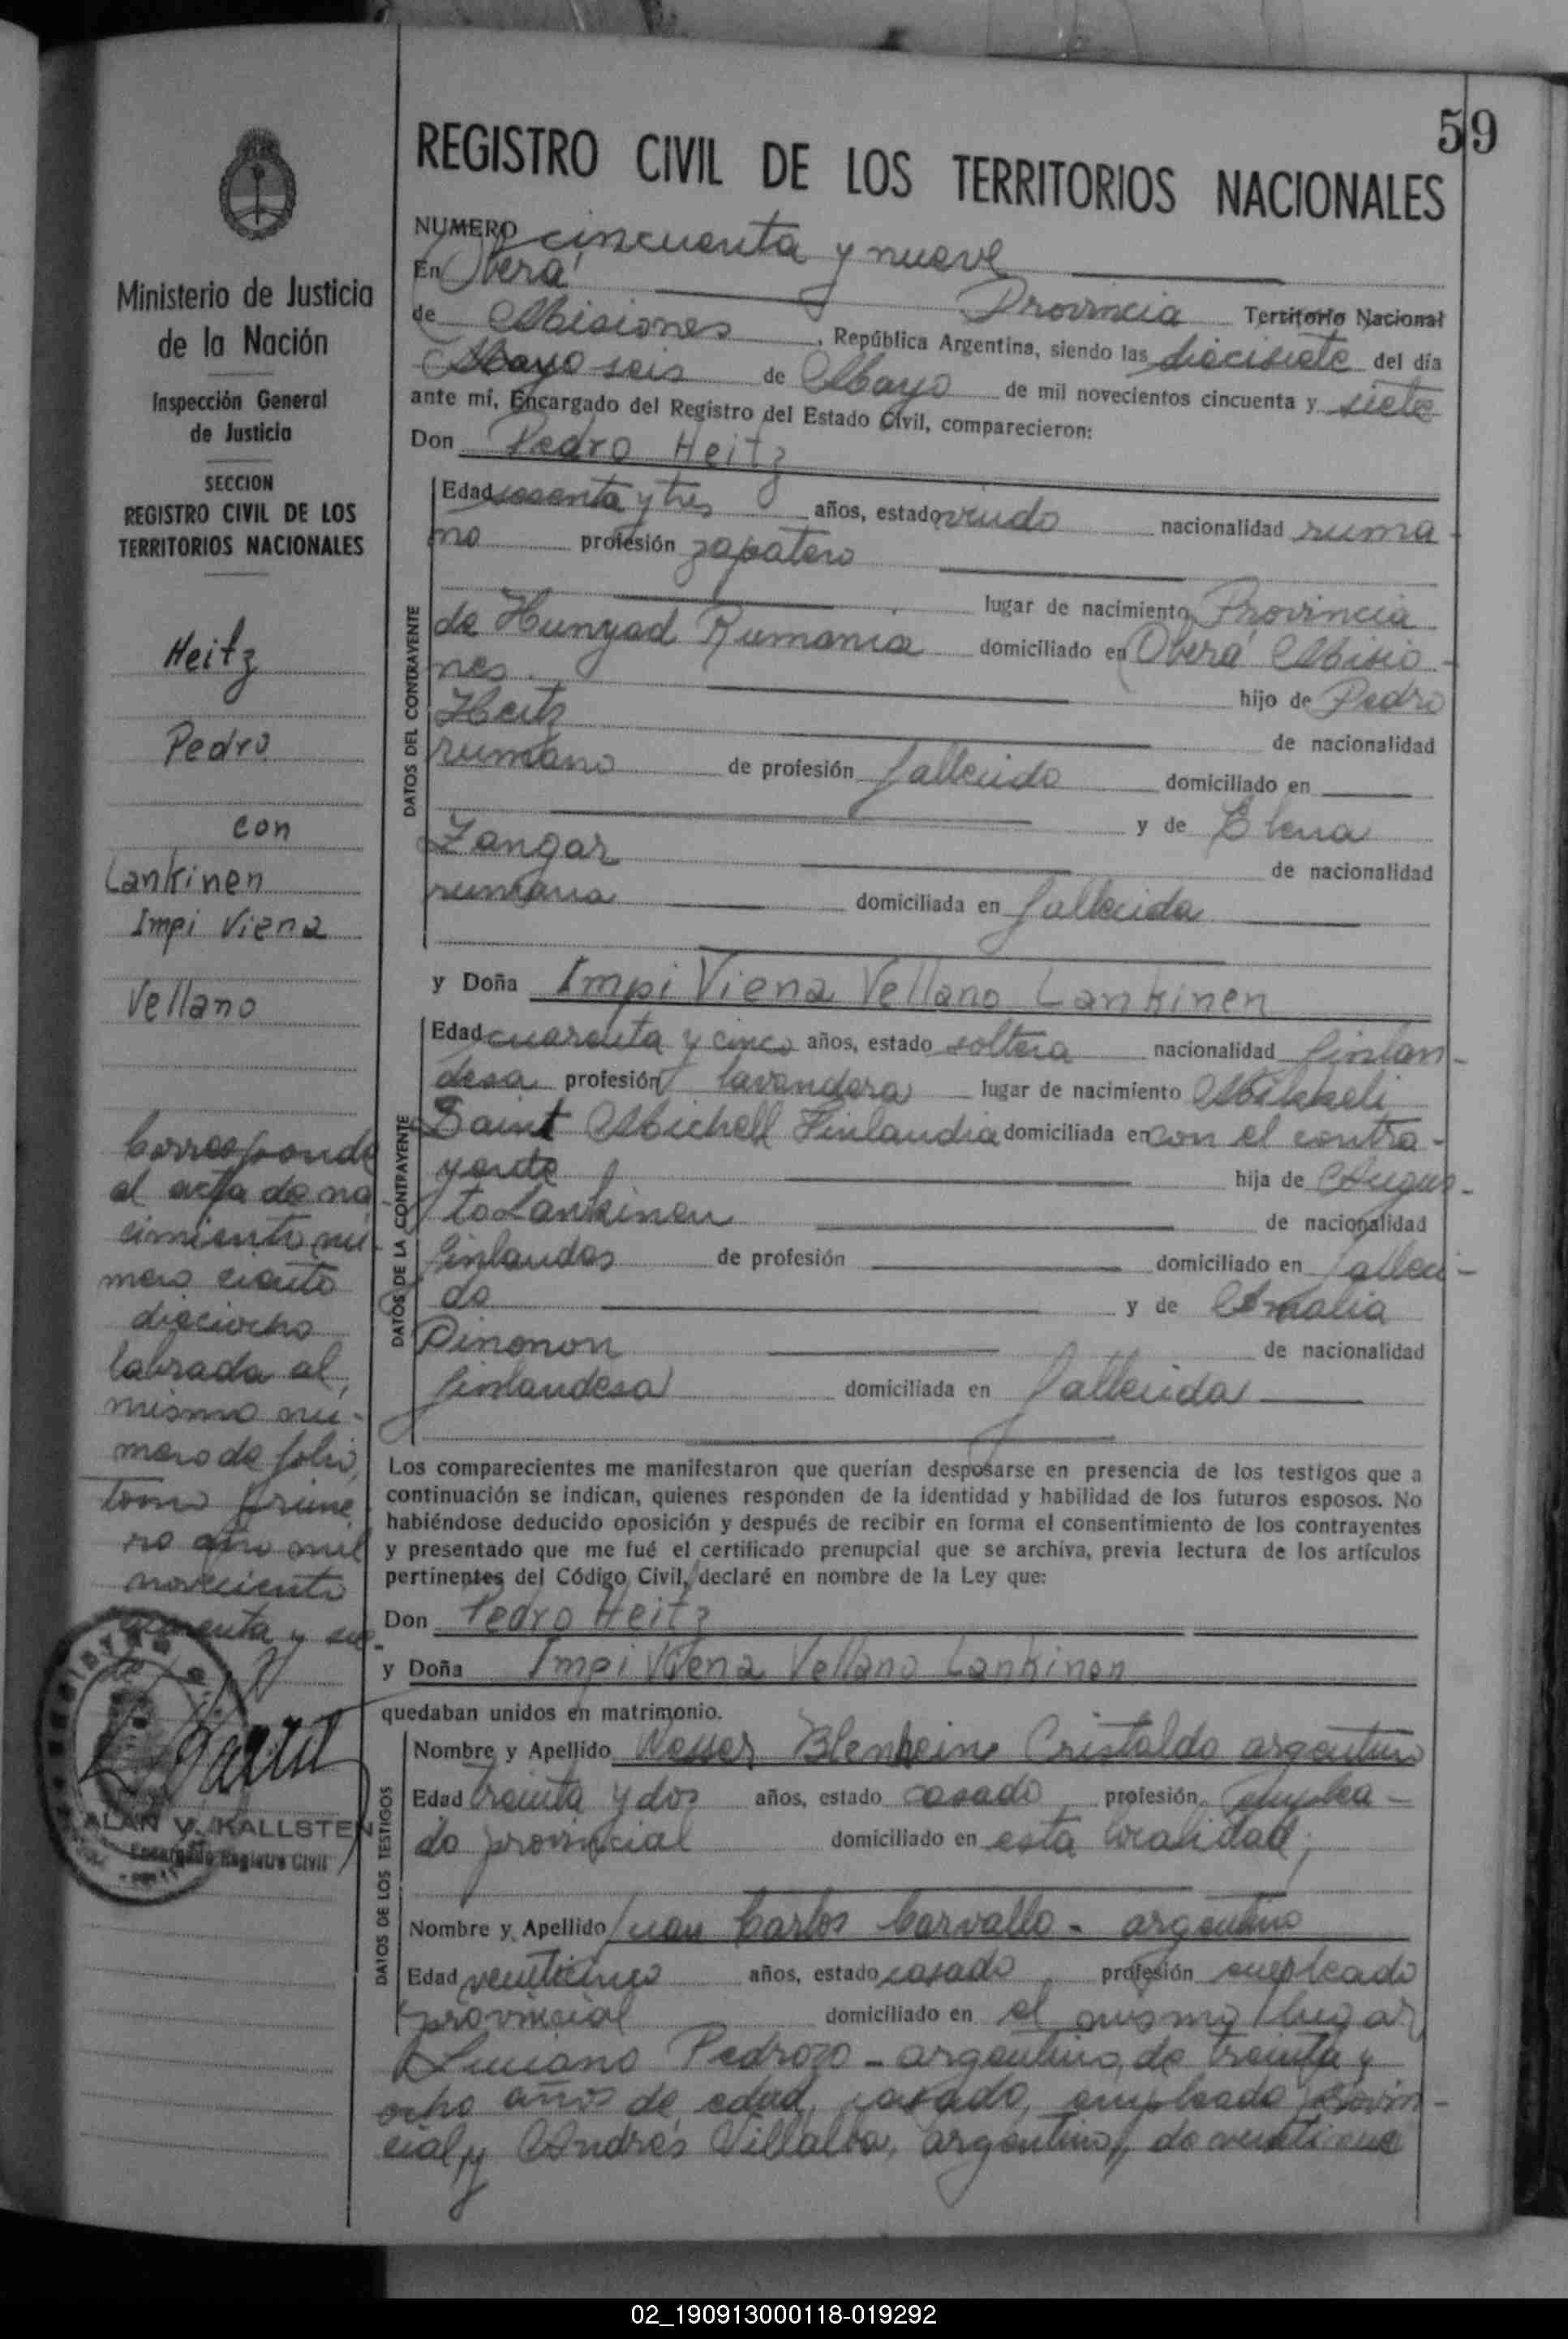 59
REGISTRO CIVIL DE LOS TERRITORIOS NACIONALES
NUMERO cincuenta y nueve
En Oberá
Provincia Territorio Nacional
de Misiones, República Argentina, siendo las diecisiete del día
Mayo seis de Mayo de mil novecientos cincuenta y siete
ante mí, Encargado del Registro del Estado Civil, comparecieron:
Don Pedro Heitz
DATOS DEL CONTRAYENTE
Edad sesenta y tres años, estado viudo nacionalidad ruma-
no profesión zapatero
lugar de nacimiento Provincia
de Hunyad Rumania domiciliado en Oberá Misio-
nes.
hijo de Pedro
Heitz
de nacionalidad
rumano de profesión fallecido domiciliado en
y de Elena
Zangar
de nacionalidad
rumana domiciliada en fallecida
y Doña Impi Viena Vellano Lankinen
DATOS DE LA CONTRAYENTE
Edad cuarenta y cinco años, estado soltera nacionalidad finlan-
desa profesión lavandera lugar de nacimiento Mikkeli
Saint Michell Finlandia domiciliada en con el contra-
yente
hija de Augus-
to Lankinen
de nacionalidad
finlandes de profesión domiciliado en falleci-
do
y de Amalia
Pinonon
de nacionalidad
finlandesa domiciliada en fallecida
Los comparecientes me manifestaron que querían desposarse en presencia de los testigos que a
continuación se indican, quienes responden de la identidad y habilidad de los futuros esposos. No
habiéndose deducido oposición y después de recibir en forma el consentimiento de los contrayentes
y presentado que me fué el certificado prenupcial que se archiva, previa lectura de los artículos
pertinentes del Código Civil, declaré en nombre de la Ley que:
Don Pedro Heitz
y Doña Impi Viena Vellano Lankinen
quedaban unidos en matrimonio.
DATOS DE LOS TESTIGOS
Nombre y Apellido Wesser Blenhein Cristaldo argentino
Edad treinta y dos años, estado casado profesión emplea-
do provincial domiciliado en esta localidad,
Nombre y Apellido Juan Carlos Carvallo - argentino
Edad veinticinco años, estado casado, profesión empleado
provincial domiciliado en el mismo lugar
Luciano Pedrozo - argentino, de treinta y
ocho años de edad, casado, empleado provin-
cial y Andrés Villalba, argentino, de veintinue
Ministerio de Justicia
de la Nación
Inspección General
de Justicia
SECCION
REGISTRO CIVIL DE LOS
TERRITORIOS NACIONALES
Heitz
Pedro
con
Lankinen
Impi Viena
Vellano
Corresponde
al acta de na
cimiento nú-
mero ciento
dieciocho
labrada al
mismo nú-
mero de folio,
tomo prime
ro año mil
novecientos
cincuenta y sie-
te
ALAN V. KALLSTEN
Encargado Registro Civil
02_190913000118-019292